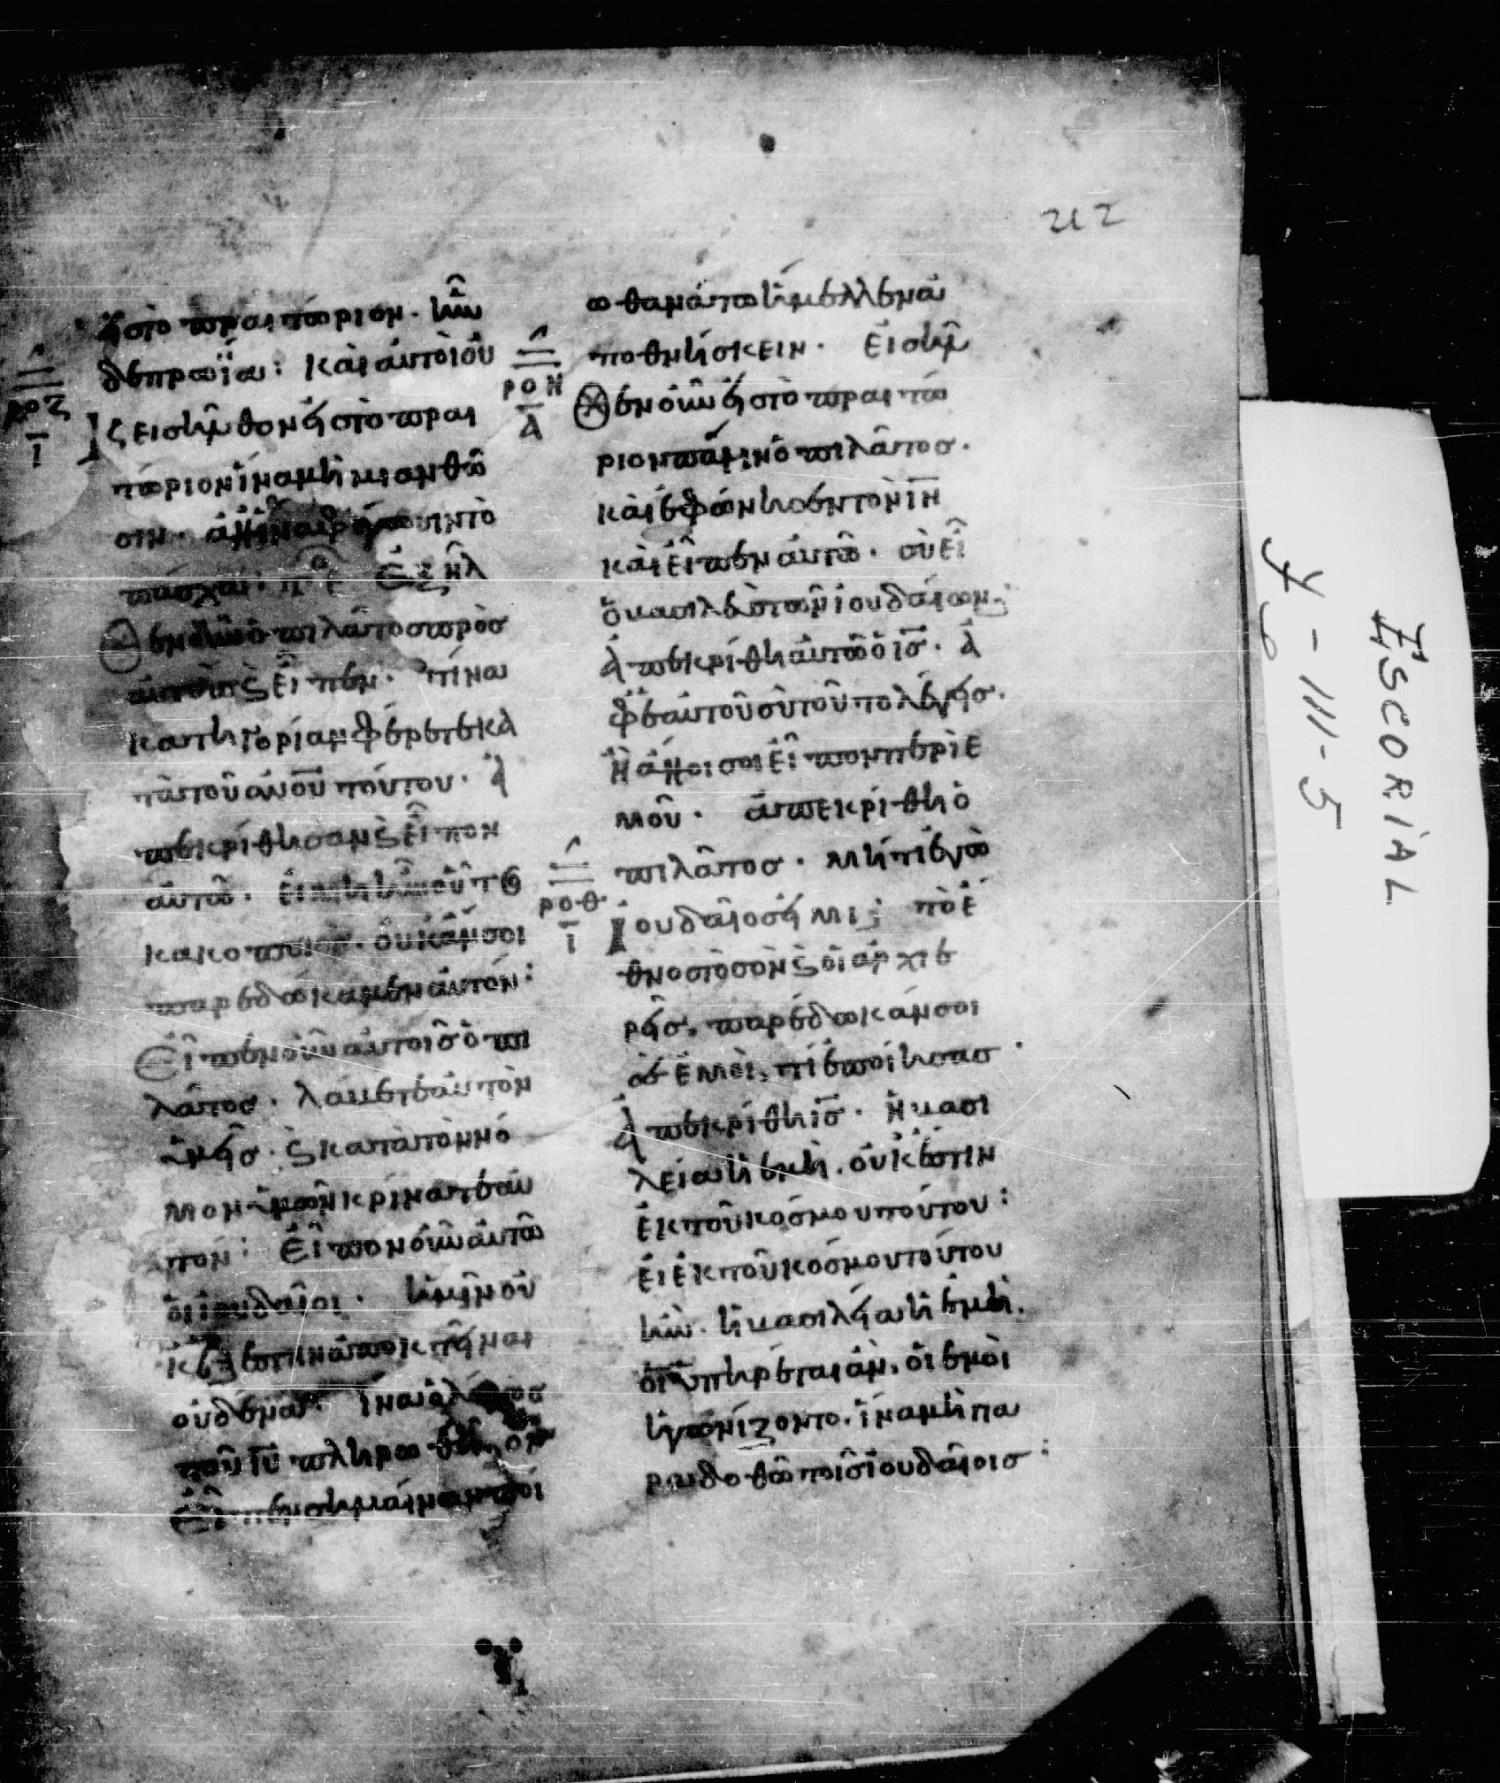 212
εἰς τὸ πραιτώριον. ἦν
δὲ πρωΐα: καὶ αὐτοὶ οὐ
κ εἰσῆλθον εἰς τὸ πραι
τώριον ἵνα μὴ μιανθῶ
σιν. ἀλλ' ἵνα φάγωσιν τὸ
πάσχα. Ἐξῆλ
θεν οὖν ὁ πιλᾶτος πρὸς
αὐτοὺς ϛ εἶπεν. τίνα
κατηγορίαν φέρετε κα
τὰ τοῦ ἀνου τούτου. ἀ
πεκρίθησαν ϛ εἶπον
αὐτῶ. εἰ μὴ ἦν οὗτος
κακοποιὸς. οὐκ ἄν σοι
παρεδώκαμεν αὐτόν:
Εἶπεν οὖν αὐτοῖς ὁ πι
λᾶτος. λάβετε αὐτὸν
ὑμεῖς. ϛ κατὰ τὸν νό
μον ὑμῶν κρίνατε αὐ
τόν: Εἶπον οὖν αὐτῶ
οἱ ἰουδαῖοι. ἡμῖν οὐ
κ ἔξεστιν ἀποκτεῖναι
οὐδένα. ἵνα ὁ λόγος
τοῦ ιυ πληρωθῆ, ὃν
εἶπεν σημαίνων ποί
ροζ
ι
ροη
α
ροθ
ι
ω θανάτω ἤμελλεν ἀ
ποθνήσκειν. Εἰσῆλ
θεν οὖν εἰς τὸ πραιτώ
ριον πάλιν ὁ πιλᾶτος.
καὶ ἐφώνησεν τὸν ιν
καὶ εἶπεν αὐτῶ. σὺ εἶ
ὁ βασιλεὺς τῶν ἰουδαίων;
Ἀπεκρίθη αὐτῶ ὁ ις. ἀ
φ' ἑαυτοῦ σὺ τοῦτο λέγεις.
ἢ ἄλλοι σοι εἶπον περὶ ἐ
μοῦ. ἀπεκρίθη ὁ
πιλᾶτος. μήτι ἐγὼ
ἰουδαῖός εἰμι; τὸ ἔ
θνος τὸ σὸν ϛ οἱ ἀρχιε
ρεῖς, παρέδωκάν σοι
σὲ ἐμοί, τί ἐποίησας.
Ἀπεκρίθη ις. ἡ βασι
λεία ἡ ἐμὴ. οὐκ ἔστιν
ἐκ τοῦ κόσμου τούτου:
εἰ ἐκ τοῦ κόσμου τούτου
ἦν. ἡ βασιλεία ἡ ἐμὴ.
οἱ ὑπηρέται ἂν, οἱ ἐμοὶ
ἠγωνίζοντο. ἵνα μὴ πα
ραδοθῶ τοῖς ἰουδαίοις:
ESCORIAL
Y-III-5